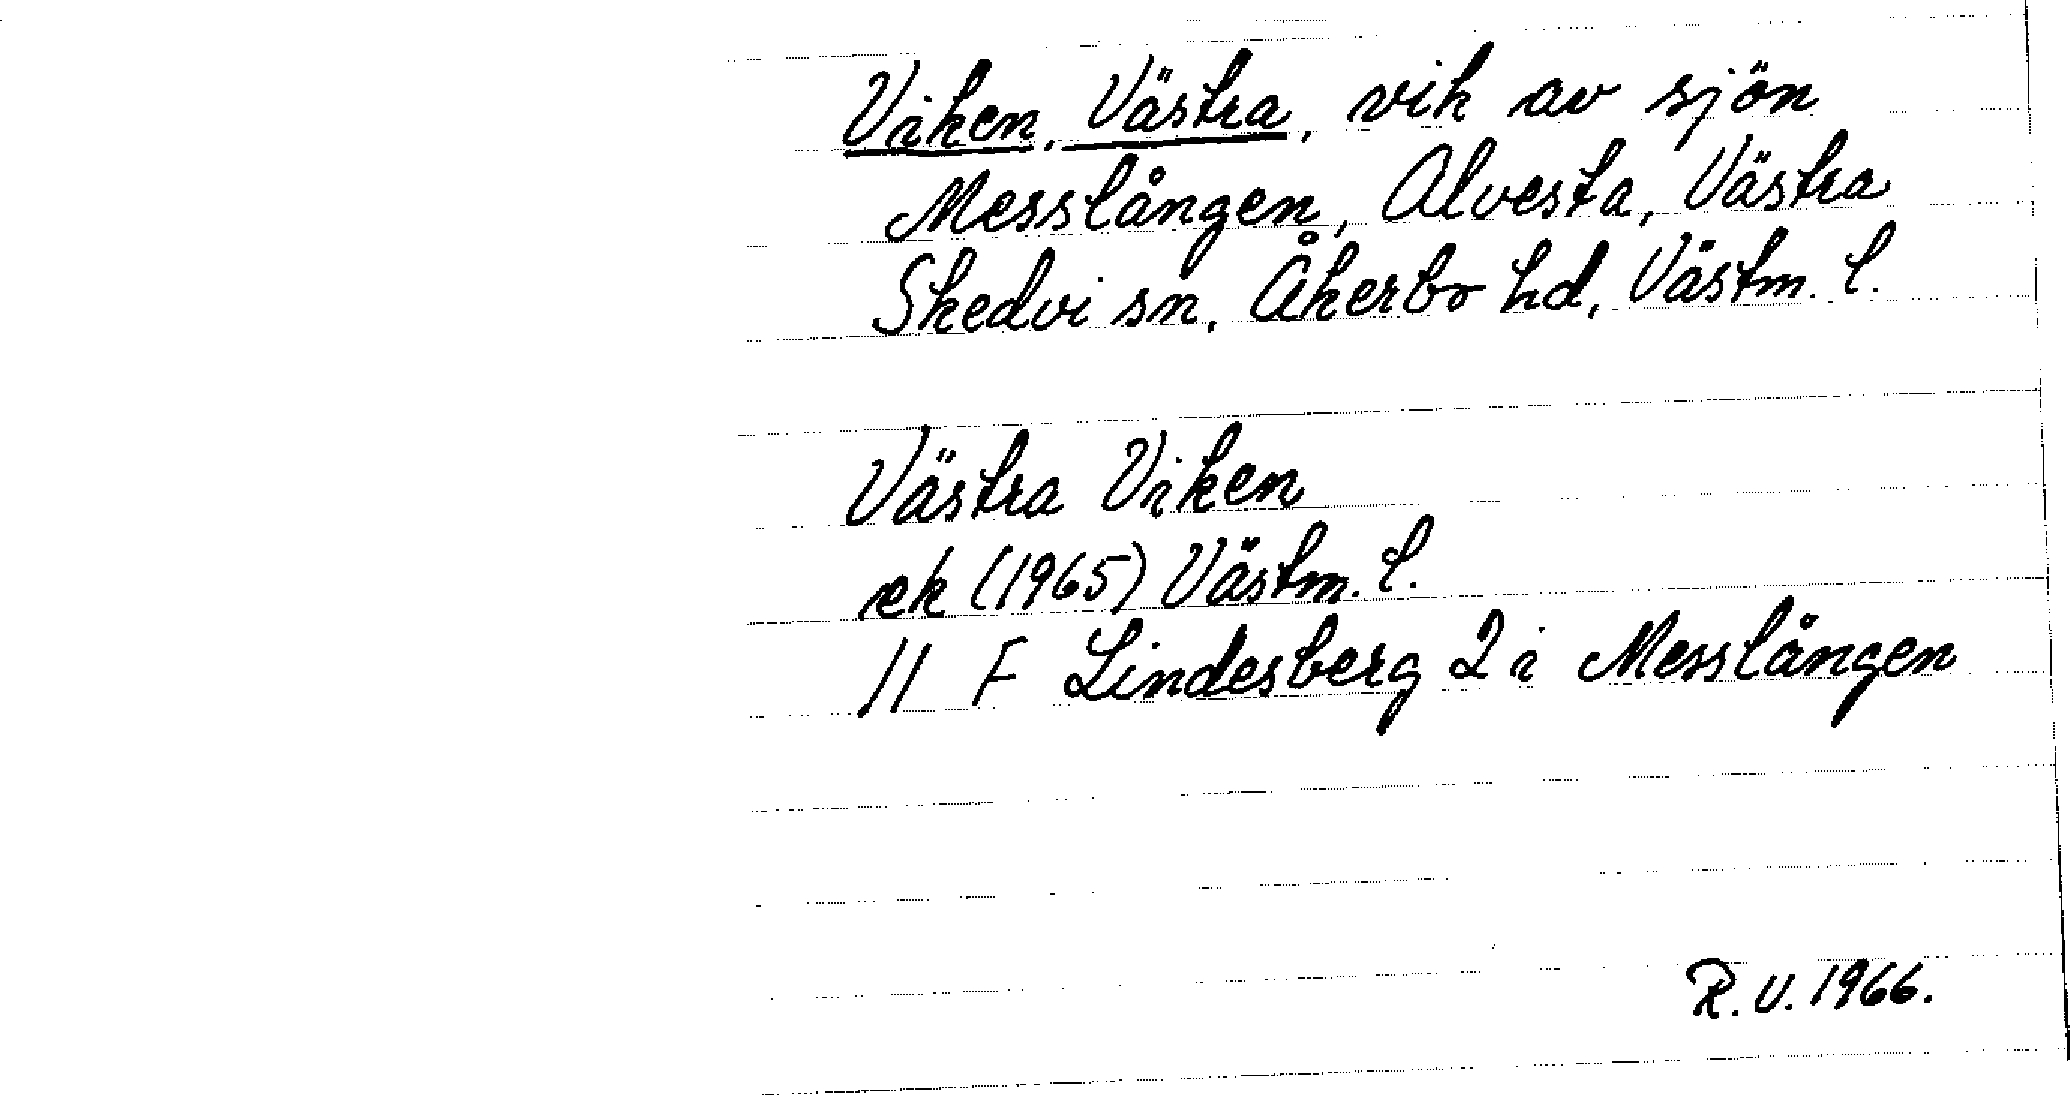 Viken, Västra, vik av sjön
Messlången, Alvesta, Västra
Skedvi sn, Åkerbo hd, Västm. l.
Västra Viken
ek (1965) Västm. l.
11 F Lindesberg 2 i Messlången
R.V. 1966.